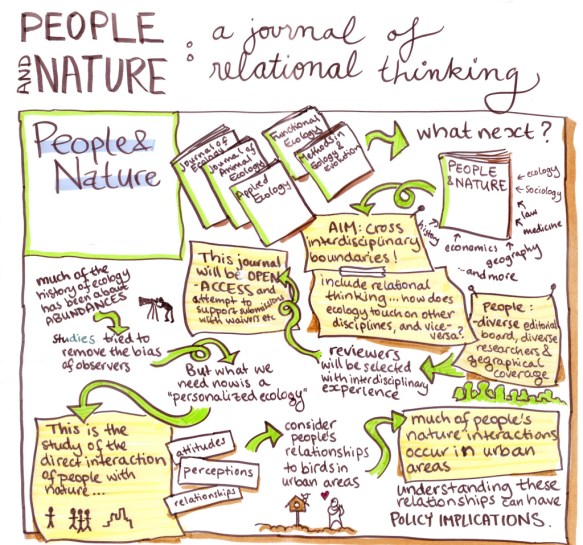 PEOPLE
AND NATURE :
a journal of
relational thinking
People &
Nature
Journal of
Ecology
Journal of
Animal
Ecology
Applied
Ecology
Functional
Ecology
Methods in
Ecology &
Evolution
what next?
PEOPLE
& NATURE
ecology
sociology
law
medicine
history
economics
geography
...and more
AIM: cross
interdisciplinary
boundaries!
include relational
thinking... how does
ecology touch on other
disciplines, and vice-
versa?
This journal
will be OPEN
ACCESS and
attempt to
support submissions
with waivers etc
People:
-diverse editorial
board, diverse
researchers &
geographical
coverage
reviewers
will be selected
with interdisciplinary
experience
much of the
history of ecology
has been about
ABUNDANCES
studies tried to
remove the bias
of observers
But what we
need now is a
"personalized ecology"
This is the
study of the
direct interaction
of people with
nature...
attitudes
perceptions
relationships
consider
people's
relationships
to birds in
urban areas
much of people's
nature interactions
occur in urban
areas
understanding these
relationships can have
POLICY IMPLICATIONS.